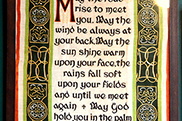 May the road
rise to meet
you. May the
wind be always at
your back. May the
sun shine warm
upon your face, the
rains fall soft
upon your fields
and until we meet
again + May God
hold you in the palm